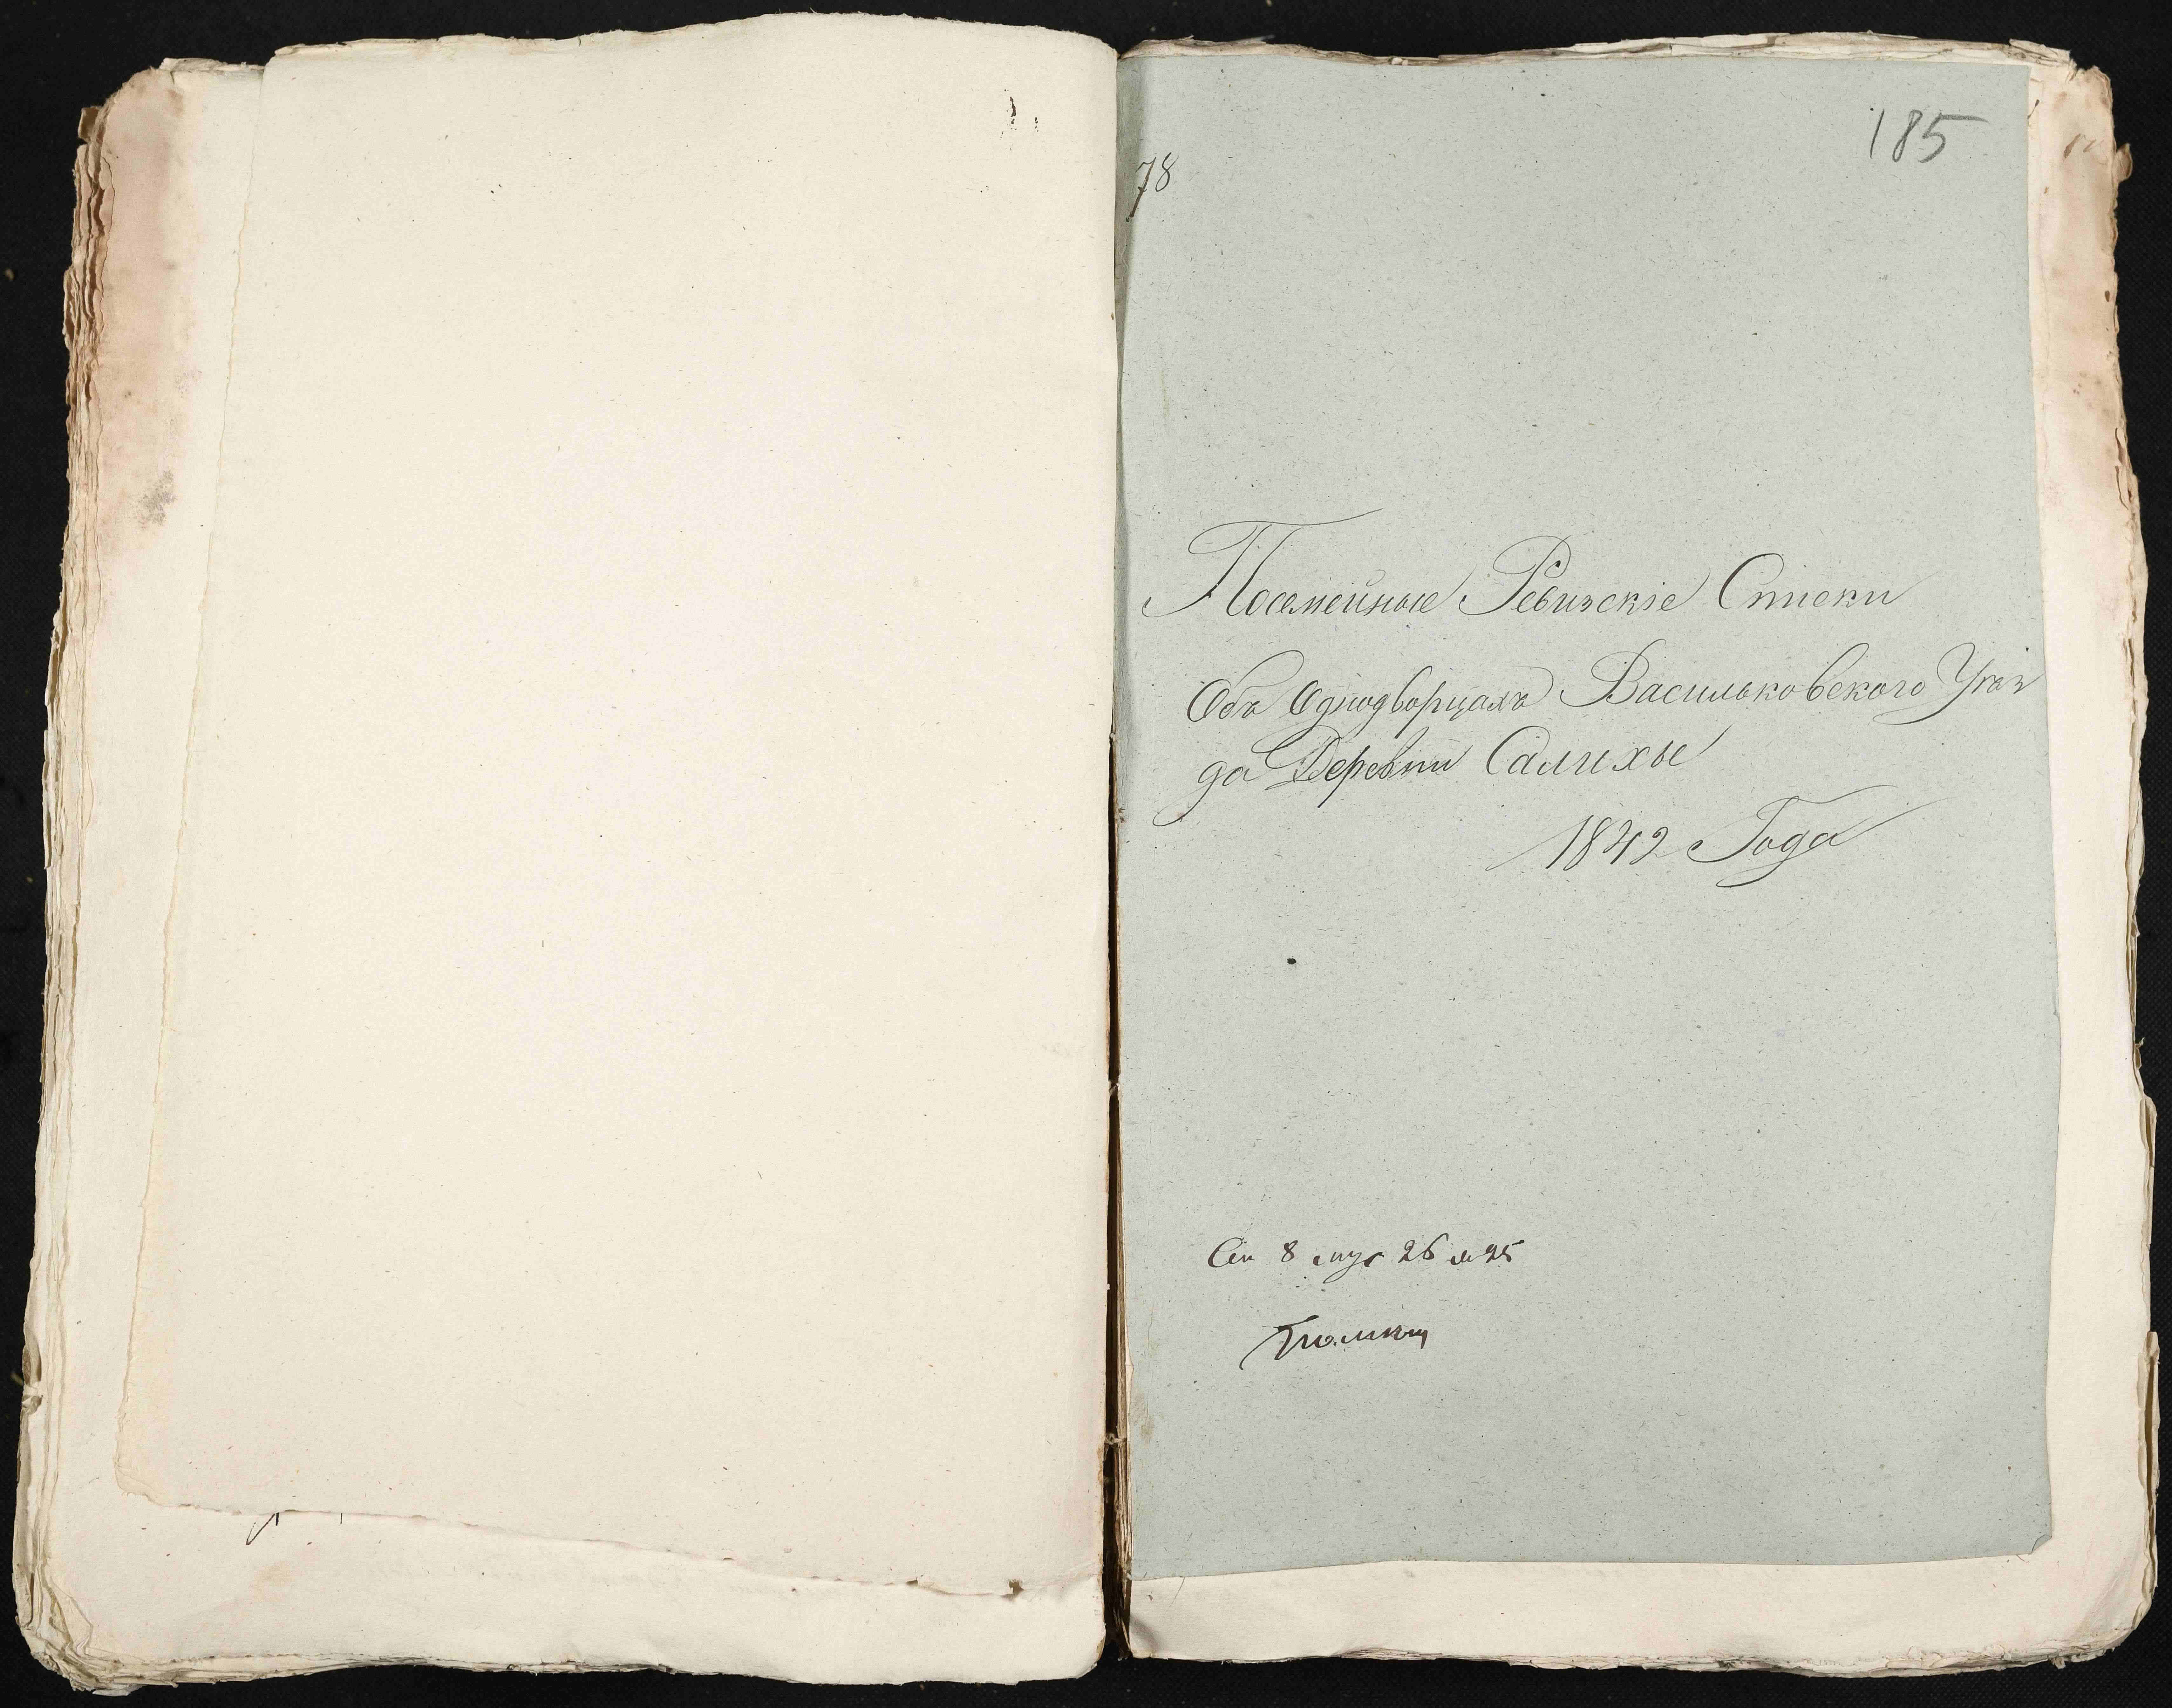 185
78
Посемейные Ревизскіе Списки
Объ Однодворцахъ Васильковского Уѣз
да Деревни Салихы
1842 Года
8 муж 26 ж 25